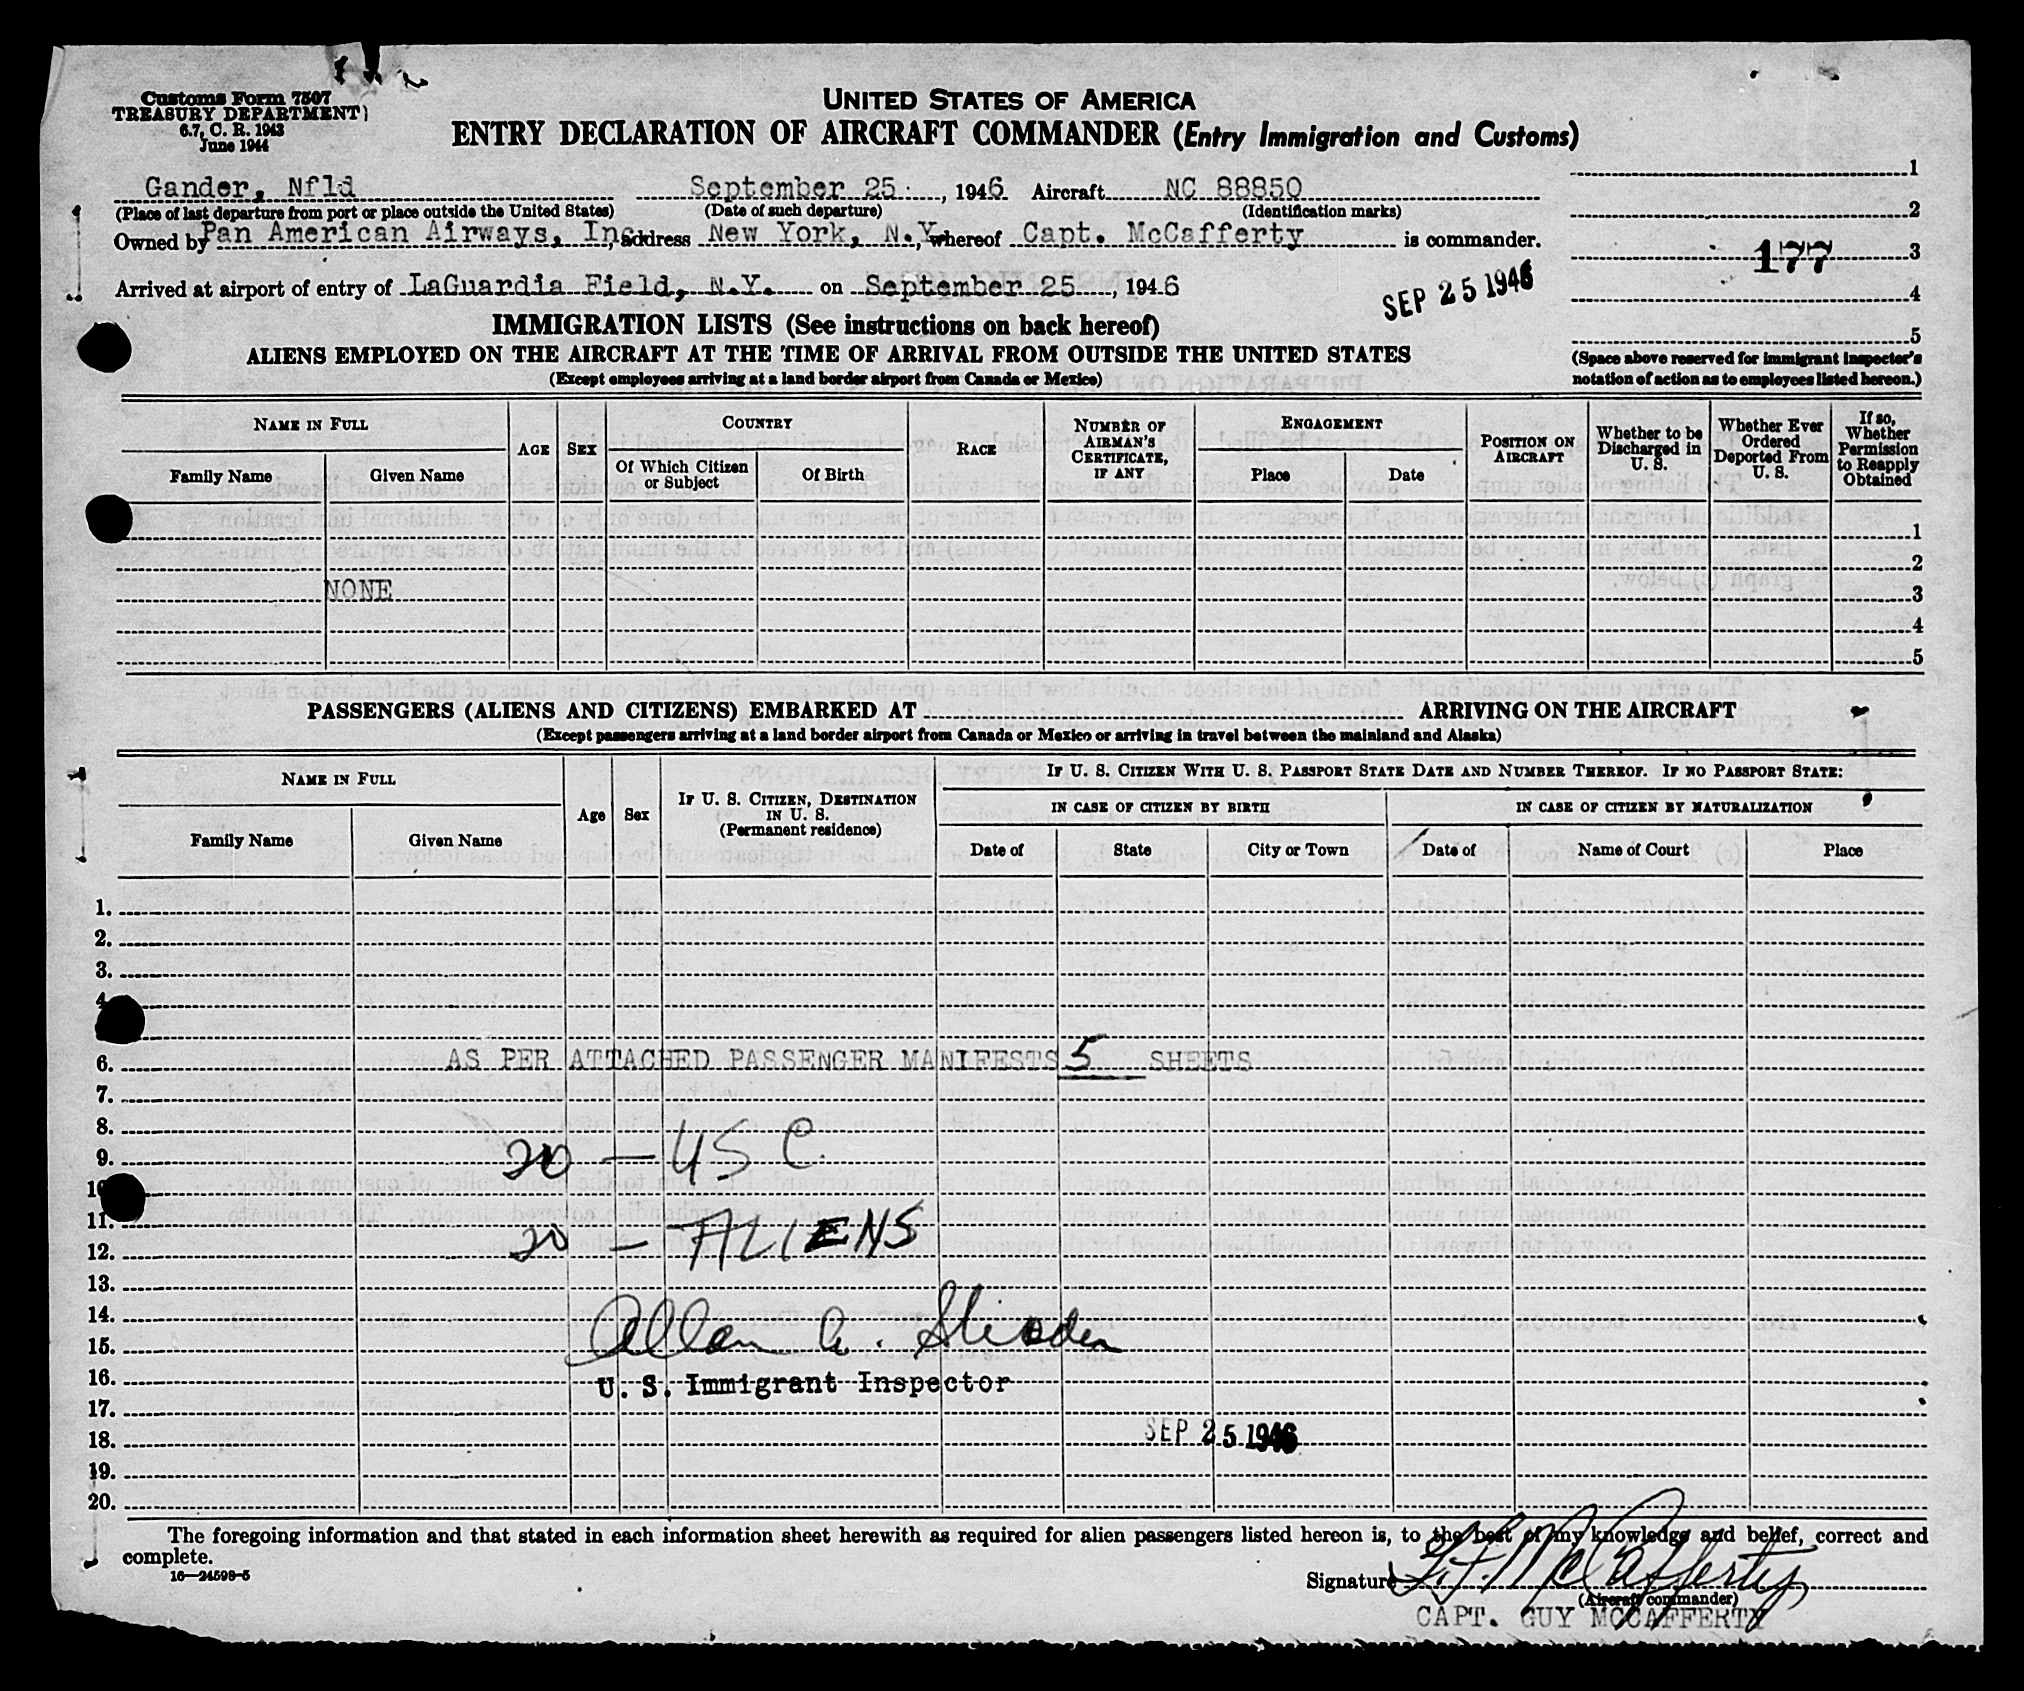 Customs Form 7507
TREASURY DEPARTMENT
6.7, C. R. 1943
June 1944
UNITED STATES OF AMERICA
ENTRY DECLARATION OF AIRCRAFT COMMANDER (Entry Immigration and Customs)
Gander, Nfld September 25, 1946 Aircraft NC 88850
(Place of last departure from port or place outside the United States) (Date of such departure) (Identification marks)
Owned by Pan American Airways, Inc., address New York, N.Y., whereof Capt. McCafferty is commander.
Arrived at airport of entry of LaGuardia Field, N.Y. on September 25, 1946
SEP 25 1946
1
2
177 3
4
5
(Space above reserved for immigrant inspector's
notation of action as to employees listed hereon.)
IMMIGRATION LISTS (See instructions on back hereof)
ALIENS EMPLOYED ON THE AIRCRAFT AT THE TIME OF ARRIVAL FROM OUTSIDE THE UNITED STATES
(Except employees arriving at a land border airport from Canada or Mexico)
NAME IN FULL
Family Name Given Name
AGE SEX
COUNTRY
Of Which Citizen or Subject Of Birth
RACE
NUMBER OF AIRMAN'S CERTIFICATE, IF ANY
ENGAGEMENT
Place Date
POSITION ON AIRCRAFT
Whether to be Discharged in U. S.
Whether Ever Ordered Deported From U. S.
If so, Whether Permission to Reapply Obtained
1
2
NONE 3
4
5
PASSENGERS (ALIENS AND CITIZENS) EMBARKED AT ARRIVING ON THE AIRCRAFT
(Except passengers arriving at a land border airport from Canada or Mexico or arriving in travel between the mainland and Alaska)
NAME IN FULL
Family Name Given Name
Age Sex
IF U. S. CITIZEN, DESTINATION IN U. S.
(Permanent residence)
IF U. S. CITIZEN WITH U. S. PASSPORT STATE DATE AND NUMBER THEREOF. IF NO PASSPORT STATE:
IN CASE OF CITIZEN BY BIRTH IN CASE OF CITIZEN BY NATURALIZATION
Date of State City or Town Date of Name of Court Place
1.
2.
3.
4
6. AS PER ATTACHED PASSENGER MANIFESTS 5 SHEETS
7.
8.
9. 20 — USC
10
11.
12. 20 — ALIENS
13.
14.
15. Allan A.
16. U. S. Immigrant Inspector
17.
18. SEP 25 1946
19.
20.
The foregoing information and that stated in each information sheet herewith as required for alien passengers listed hereon is, to the best of my knowledge and belief, correct and
complete.
16—24598-5
Signature G. F. McCafferty
(Aircraft commander)
CAPT. GUY MCCAFFERTY